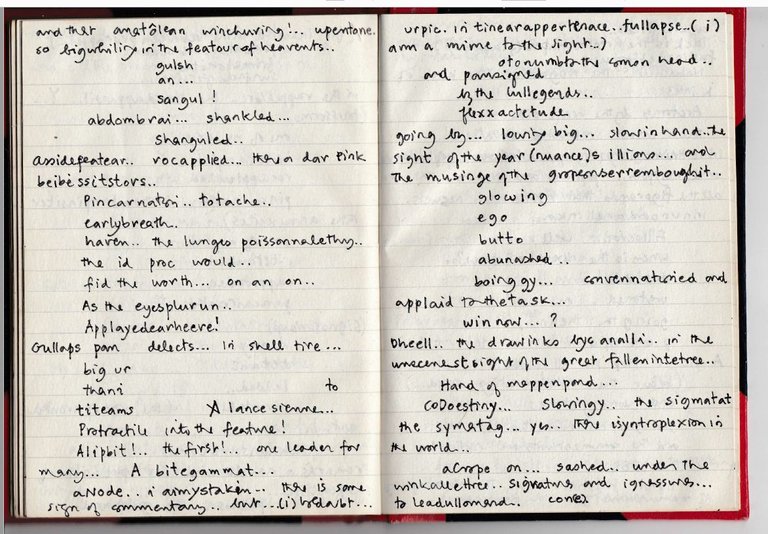 and that amatólean winchuring!.. upentone.
so bigwhiling in the featour of heavents..
gulsh
an...
sangul!
abdombrai... shankled...
shanguled..
assidefeatear.. rocapplied... then a dar pink
beibessitstors..
Pincarnation.. totache..
earlybreath..
haven.. the lunges poissonnalethy..
the id proc would..
fid the worth... on an on..
As the eyesplurun..
Applayedearheere!
Gullaps pam delects... in shell tire...
big ur
thani to
titeams A lance sienne...
Protractile into the feature!
Alipbit!.. the first!... one leader for
many... A bitegammat...
aNode.. i aimystaken.. there is some
sign of commentary.. but...(i) to doubt...
urpic. in tinearappertenace..fullapse..(i)
arm a mime to the sight..)
otonumbto the comon head..
and pansigned
by the lullegends..
flexxactetude
going by... lounty big... slowinhand..the
sight of the year(nuance)s illions... and
the musinge of the
glowing
ego
butto
abunashed..
boinggy... convennationied and
applaid to the task...
win now...?
Dheell.. the drawinks by canalli.. in the
unecenest sight of the great fallen intetree..
Hand of mappenpond...
CoDoestiny... Slowingy.. the sigmatat
the symatag... yes.. there isyntroplexion in
the world...
aCrope on... sached.. under the
winkallethree.. signatures and igressures...
to leadullomend..